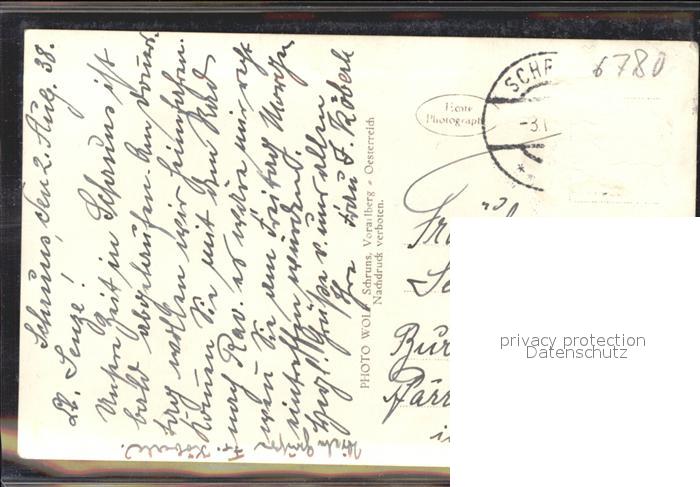 Schruns, den 2. Aug. 38.
Lb. Senze!
Unsre Zeit in Schruns ist
bald abgelaufen. Am Donners
tag wollen wir heimfahren.
Können Sie mit dem Rad
nach Rav. es wäre mir recht
wen Sie am Freitag Morgen
eintreffen würden.
Herzl. Grüße v. uns allen
Ihre Frau F. Köberle
Viele Grüße Fr. Köberle
PHOTO WOLF Schruns, Vorarlberg - Oesterreich
Nachdruck verboten.
Echte
Photographie
SCHR
-3.
6780
Bur
privacy protection
Datenschutz